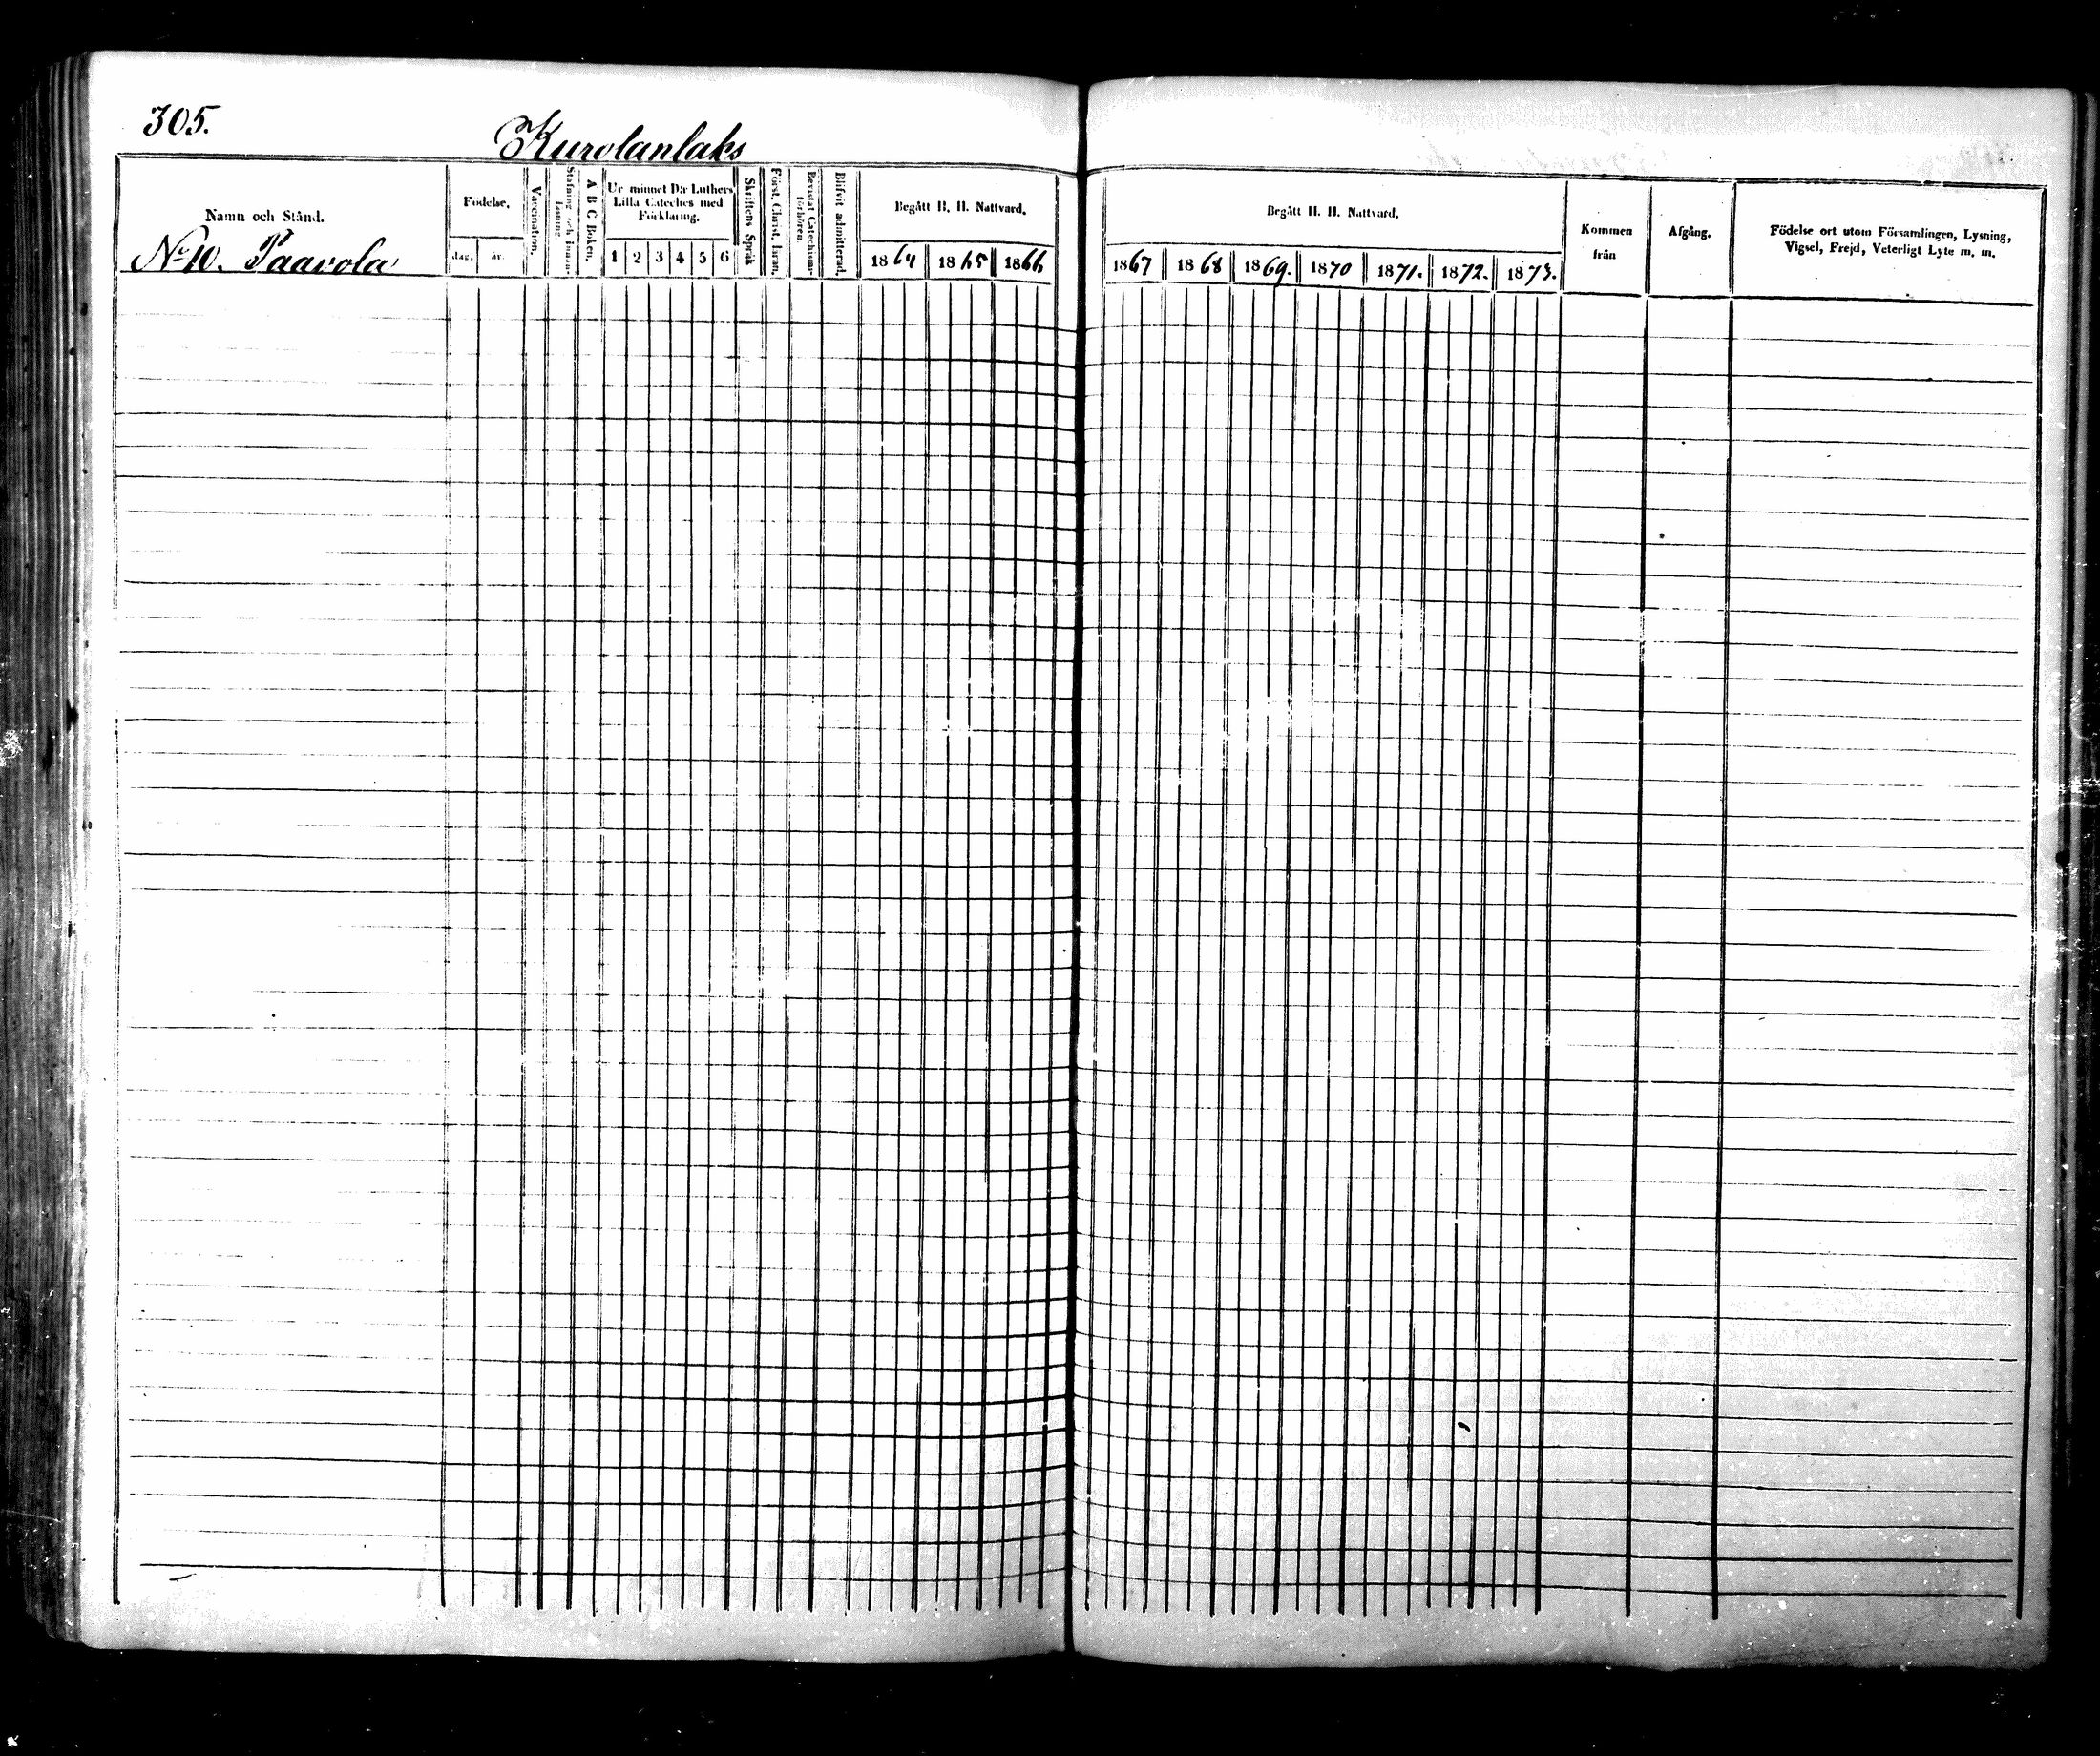 305.
Kurolanlaks
Namn och Stånd.
No 10. Paavola
Födelse.
dag.
år.
Vaccination.
A B C Boken.
Ur minnet D:r Luthers
Lilla Cateches med
Förklaring.
1 2 3 4 5 6
Skriftens Språk
Först. Christ. Läran.
Bevistat Catechismi-
förhören.
Blifvit admitterad.
Begått H. H. Nattvard.
1864 1865 1866
Begått H. H. Nattvard.
1867 1868 1869. 1870 1871. 1872. 1873.
Kommen
från
Afgång.
Födelse ort utom Församlingen, Lysning,
Vigsel, Frejd, Veterligt Lyte m. m.